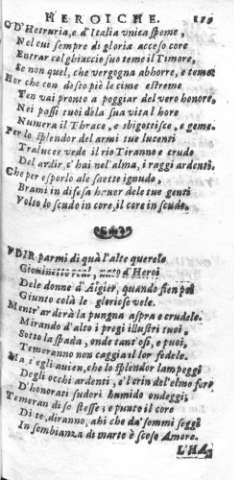 HEROICHE. 119
O D'Hetruria, e d'Italia unica speme,
Nel cui sempre di gloria acceso core
Entrar col ghiaccio suo teme il Timore,
Se non quel, che vergogna abhorre, e teme:
Hor che con desto piè le cime estreme
Ten vai pronto a poggiar del vero honore,
Nei passi tuoi de la sua vita l hore
Numera il Thrace, e sbigottisce, e geme.
Per lo splendor del armi tue lucenti
Tralucer vede il rio Tiranno e crudo
Del ardir, c'hai nel'alma, i raggi ardenti.
Che per esporlo ale saette ignudo,
Brami in difesa haver dele tue genti
Volto lo scudo in core, il core in scudo.
UDIR parmi di quà l'alte querele
Giovinetto real, nato d'Heroi
Dele donne d'Algier, quando fien poi
Giunto colà le gloriose vele.
Mentr'arderà la pungna aspra e crudele.
Mirando d'alto i pregi illustri tuoi,
Sotto la spada, onde tant'osi, e puoi,
Temeranno non caggia il lor fedele.
Ma s'egli avien, che lo splendor lampeggi
Degli occhi ardenti, e'l crin del'elmo fore
D'honorati sudori humido ondeggi;
Temeran di se stesse; e punte il core
Di te, diranno, ahi che da'sommi seggi
In sembianza di marte è sceso Amore.
L'HA,